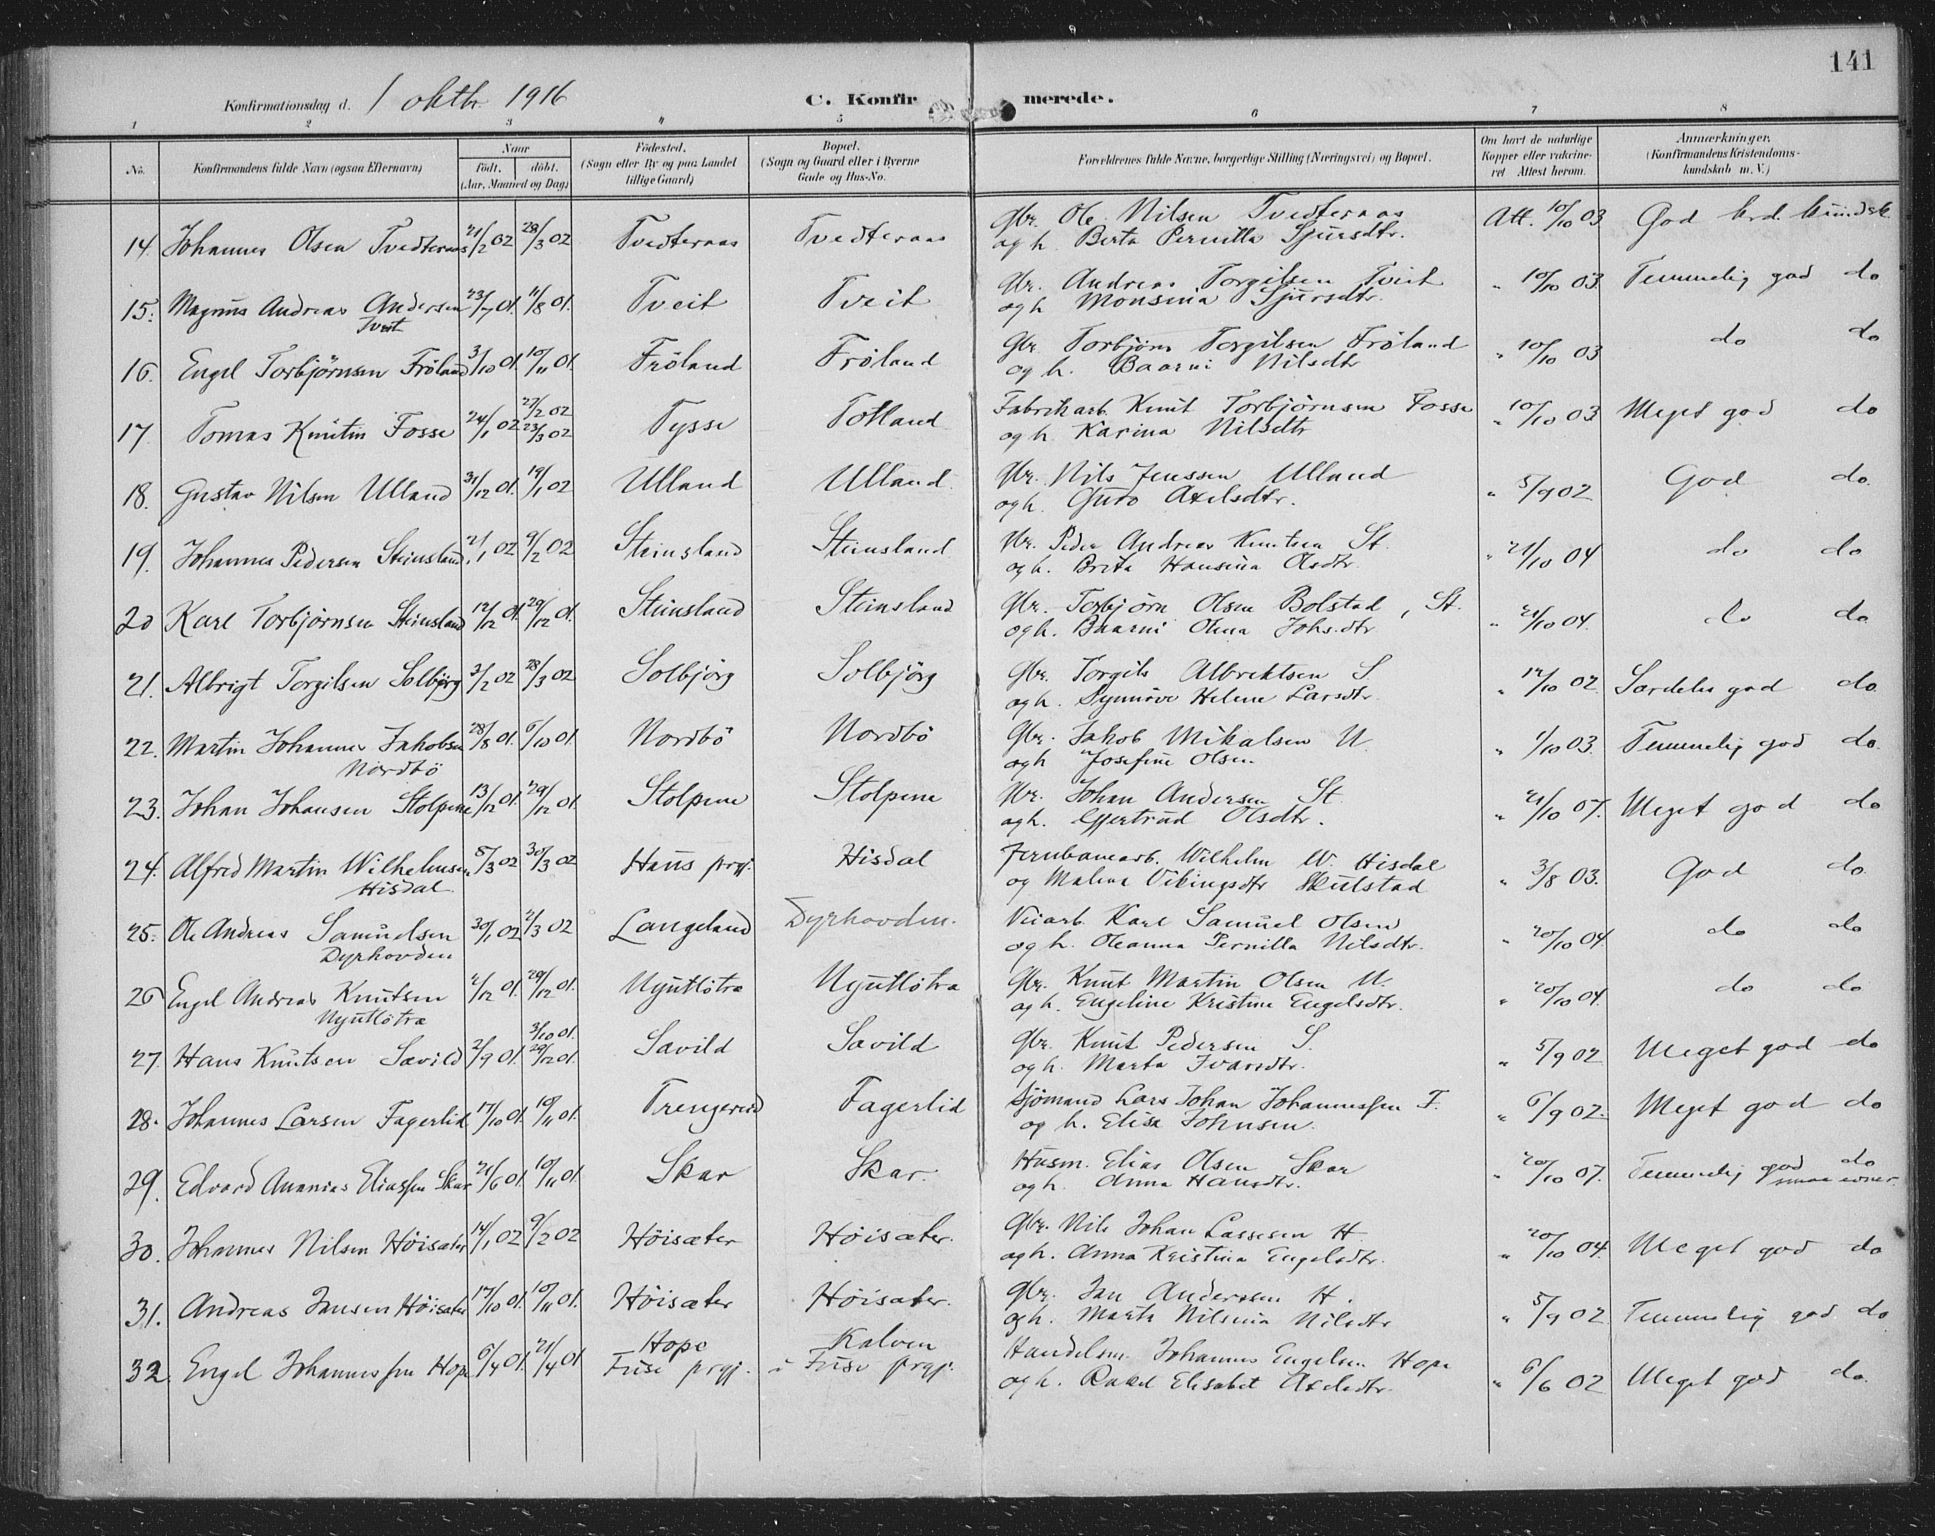 141
Konfirmationsdag d. 1 oktbr. 1916 C. Konfirmerede.
1 2 3 4 5 6 7 8
No. Konfirmandens fulde Navn (ogsaa Efternavn) Naar födt. döbt. (Aar, Maaned og Dag) Födested. (Sogn eller By og paa Landet tillige Gaard) Bopæl. (Sogn og Gaard eller i Byerne Gade og Hus-No. Forældrenes fulde Navne, borgerlige Stilling (Næringsvei) og Bopæl. Om havt de naturlige Kopper eller vakcineret. Attest herom. Anmærkninger. (Konfirmandens Kristendomskundskab m. V.)
14. Johannes Olsen Tvedteraas 21/2 02 28/3 02 Tvedteraas Tvedteraas Gbr. Ole Nilsen Tvedteraas Att. 10/10 03 God krd. kundsk.
og h. Berta Pernilla Sjursdtr.
15. Magnus Andreas Andersen 23/7 01. 11/8 01. Tveit Tveit Gbr. Andreas Torgilsen Tveit " 10/10 03. Temmelig god do
Tveit og h. Monsina Sjursdtr.
16. Engel Torbjørnsen Fröland 3/10 01. 10/11 01. Fröland Fröland Gbr. Torbjørn Torgilsen Fröland " 10/10 03 do do
og h. Baarni Nilsdtr
17 Tomas Knutsen Fosse 24/1 02 27/2 02 23/3 02 Tysse Totland Fabrikarb. Knut Torbjørnsen Fosse " 10/10 03 Meget god do
og h. Karina Nilsdtr
18. Gustav Nilsen Ulland 31/12 01. 19/1 02 Ulland Ulland. Gbr. Nils Jenssen Ulland " 5/9 02 God do.
og h. Guro Axelsdtr.
19. Johannes Pedersen Steinsland 2/1 02 9/2 02 Steinsland Steinsland. Gbr. Peder Andreas Knutsen St. " 21/10 04 do do
og h. Brita Hansina Olsdtr.
20 Karl Torbjørnsen Steinsland 12/12 01. 29/12 01. Steinsland Steinsland Gbr. Torbjørn Olsen Bolstad, St. " 21/10 04. do do.
og h. Baarni Olina Johs.dtr
21. Albrigt Torgilsen Solbjörg 3/2 02 28/3 02 Solbjörg Solbjörg Gbr. Torgils Albrektsen S. " 12/10 02. Særdeles god do.
og h. Synnöve Helene Larsdtr.
22. Martin Johannes Jakobsen 28/8 01. 6/10 01. Nordbö Nordbö Gbr. Jakob Mikalsen N. " 1/10 03. Temmelig god do.
Nordbö og h Josefine Olsen.
23. Johan Johansen Stolpene 13/12 01. 29/12 01. Stolpene Stolpene Gbr. Johan Andersen St. " 21/10 07. Meget god do
og h. Gjertrud Olsdtr.
24. Alfred Martin Wilhelmsen 5/3 02 30/3 02 Haus prgj. Hisdal Jernbanearb. Wilhelm W. Hisdal " 3/8 03. God do
Hisdal og Malena Vikingsdtr Skulstad
25. Ole Andreas Samuelsen 30/1 02 2/3 02 Langeland Dyrhovden. Veiarb. Karl Samuel Olsen " 20/10 04. do do
Dyrhovden og h. Oleanna Pernilla Nilsdtr.
26 Engel Andreas Knutsen 2/12 01. 29/12 01. Nyutlötra Nyutlötra Gbr. Knut Martin Olsen N. " 20/10 04. do do
Nyutlötra og h. Engeline Kristine Engelsdtr.
27. Hans Knutsen Sævild 2/9 01. 3/10 01. 29/12 01. Sævild Sævild Gbr. Knut Pedersen S. " 5/9 02 Meget god do
og h. Marta Ivarsdtr.
28. Johannes Larsen Fagerlid 17/10 01. 10/11 01. Trengereid Fagerlid Sjömand Lars Johan Johannessen F. " 6/9 02. Meget god do
og h. Elisa Johnsen.
29. Edvard Ananias Eliassen Skar 21/6 01. 10/11 01. Skar Skar. Husm. Elias Olsen Skar " 20/10 07. Temmelig god do
og h. Anna Hansdtr. smaa evner.
30. Johannes Nilsen Höisæter 14/1 02 9/2 02 Höisæter Höisæter. Gbr. Nils Johan Lassesen H. " 20/10 04. Meget god do
og h. Anna Kristina Engelsdtr.
31. Andreas Jansen Höisæter 17/10 01. 10/11 01. Höisæter Höisæter. Gbr. Jan Anderssen H. " 5/9 02 Temmelig god do
og h. Marta Nilsina Nilsdtr
32. Engel Johannessen Hope 6/4 01. 21/4 01 Hope Fuse prgj. Kalven i Fuse prgj. Handelsm. Johannes Engelsen Hope " 6/6 02 Meget god do.
og h. Rakel Elisabet Axelsdtr.